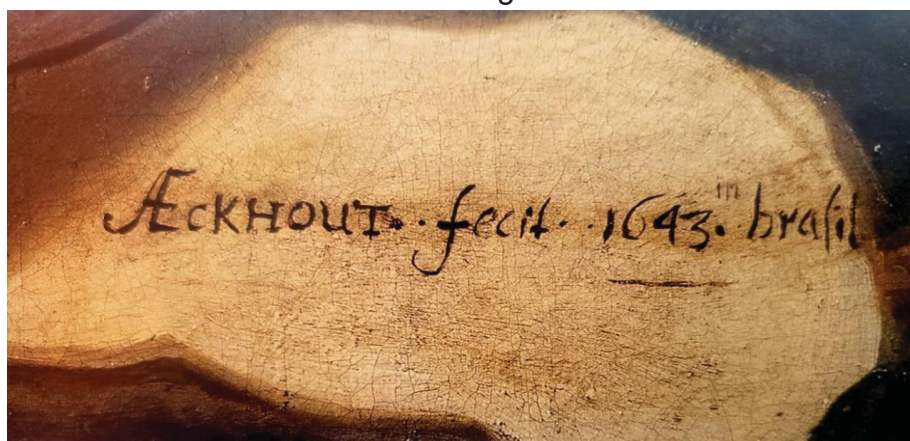 ÆCKHOUT. · fecit · · 1643. in braſil